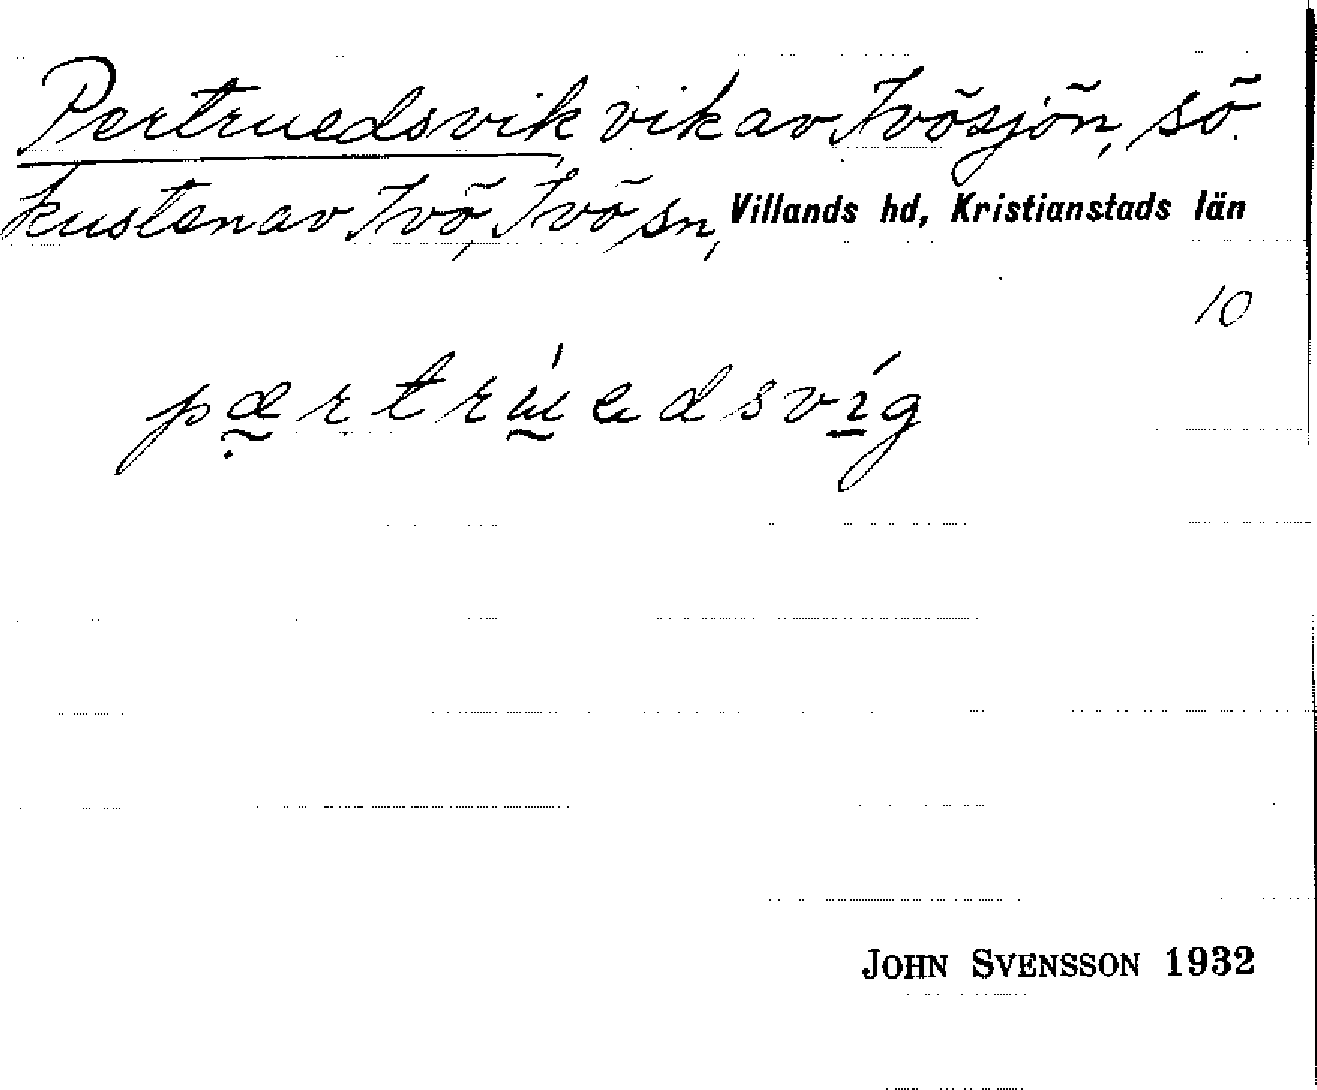 Pertruedsvik vik av Ivösjön, sö.
kusten av Ivö, Ivö sn, Villands hd, Kristianstads län
10
pærtrúedsvíg
JOHN SVENSSON 1932